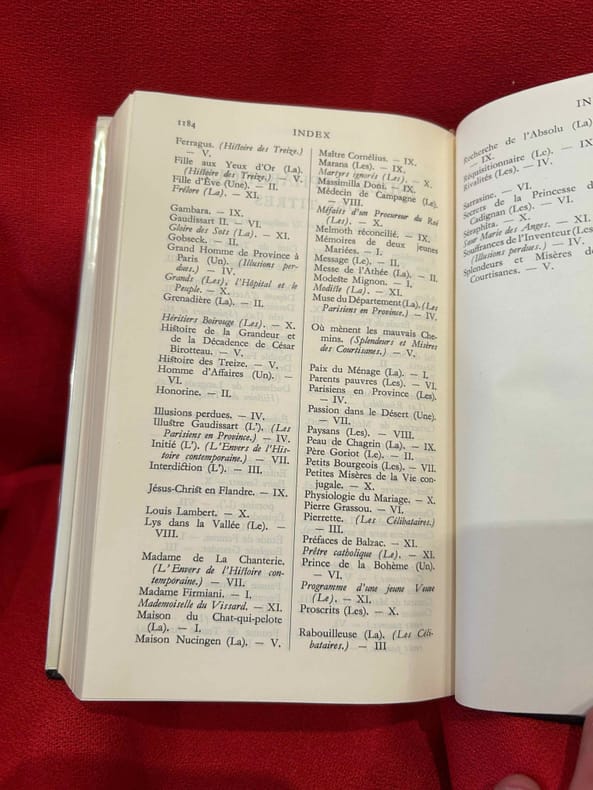 1184
INDEX
Ferragus. (Histoire des Treize.)
— V.
Fille aux Yeux d'Or (La).
(Histoire des Treize.) — V.
Fille d'Ève (Une). — II.
Frélore (La). — XI.
Gambara. — IX.
Gaudissart II. — VI.
Gloire des Sots (La). — XI.
Gobseck. — II.
Grand Homme de Province à
Paris (Un). (Illusions per-
dues.) — IV.
Grands (Les), l'Hôpital et le
Peuple. — X.
Grenadière (La). — II.
Héritiers Boirouge (Les). — X.
Histoire de la Grandeur et
de la Décadence de César
Birotteau. — V.
Histoire des Treize. — V.
Homme d'Affaires (Un). —
VI.
Honorine. — II.
Illusions perdues. — IV.
Illustre Gaudissart (L'). (Les
Parisiens en Province.) — IV.
Initié (L'). (L'Envers de l'His-
toire contemporaine.) — VII.
Interdiction (L'). — III.
Jésus-Christ en Flandre. — IX.
Louis Lambert. — X.
Lys dans la Vallée (Le). —
VIII.
Madame de La Chanterie.
(L'Envers de l'Histoire con-
temporaine.) — VII.
Madame Firmiani. — I.
Mademoiselle du Vissard. — XI.
Maison du Chat-qui-pelote
(La). — I.
Maison Nucingen (La). — V.
Maître Cornélius. — IX.
Marana (Les). — IX.
Martyrs ignorés (Les). — X.
Massimilla Doni. — IX.
Médecin de Campagne (Le).
— VIII.
Méfaits d'un Procureur du Roi
(Les). — X.
Melmoth réconcilié. — IX.
Mémoires de deux jeunes
Mariées. — I.
Message (Le). — II.
Messe de l'Athée (La). — II.
Modeste Mignon. — I.
Modiste (La). — XI.
Muse du Département (La). (Les
Parisiens en Province.) — IV.
Où mènent les mauvais Che-
mins. (Splendeurs et Misères
des Courtisanes.) — V.
Paix du Ménage (La). — I.
Parents pauvres (Les). — VI.
Parisiens en Province (Les).
— IV.
Passion dans le Désert (Une).
— VII.
Paysans (Les). — VIII.
Peau de Chagrin (La). — IX.
Père Goriot (Le). — II.
Petits Bourgeois (Les). — VII.
Petites Misères de la Vie con-
jugale. — X.
Physiologie du Mariage. — X.
Pierre Grassou. — VI.
Pierrette. (Les Célibataires.)
— III.
Préfaces de Balzac. — XI.
Prêtre catholique (Le). — XI.
Prince de la Bohème (Un).
— VI.
Programme d'une jeune Veuve
(Le). — XI.
Proscrits (Les). — X.
Rabouilleuse (La). (Les Céli-
bataires.) — III
IN
Recherche de l'Absolu (La)
— IX.
Réquisitionnaire (Le). — IX
Rivalités (Les). — IV.
Sarrasine. — VI.
Secrets de la Princesse d
Cadignan (Les). — VI.
Séraphîta. — X.
Sœur Marie des Anges. — XI.
Souffrances de l'Inventeur (Les
(Illusions perdues.) — IV.
Splendeurs et Misères de
Courtisanes. — V.